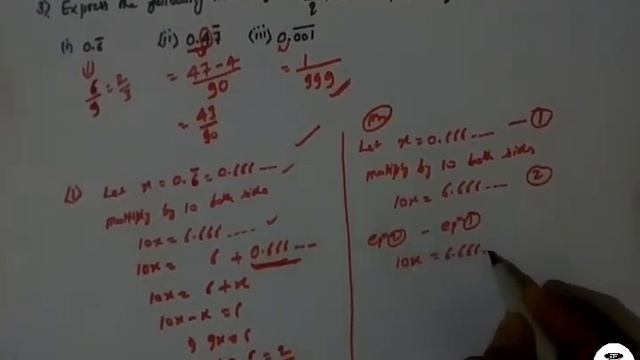 3) Express the following in
2
(i) 0.6̅ (ii) 0.47̅ (iii) 0.0̅0̅1̅
6/9 = 2/3
= 47-4/90
= 1/999
= 43/90
(1) Let x = 0.6̅ = 0.666....
multiply by 10 both side
10x = 6.666....
10x = 6 + 0.666...
10x = 6 + x
10x - x = 6
9x = 6
= 2
Let x = 0.666.... — ①
multiply by 10 both sides
10x = 6.666.... ②
eqⁿ② - eqⁿ①
10x = 6.666..